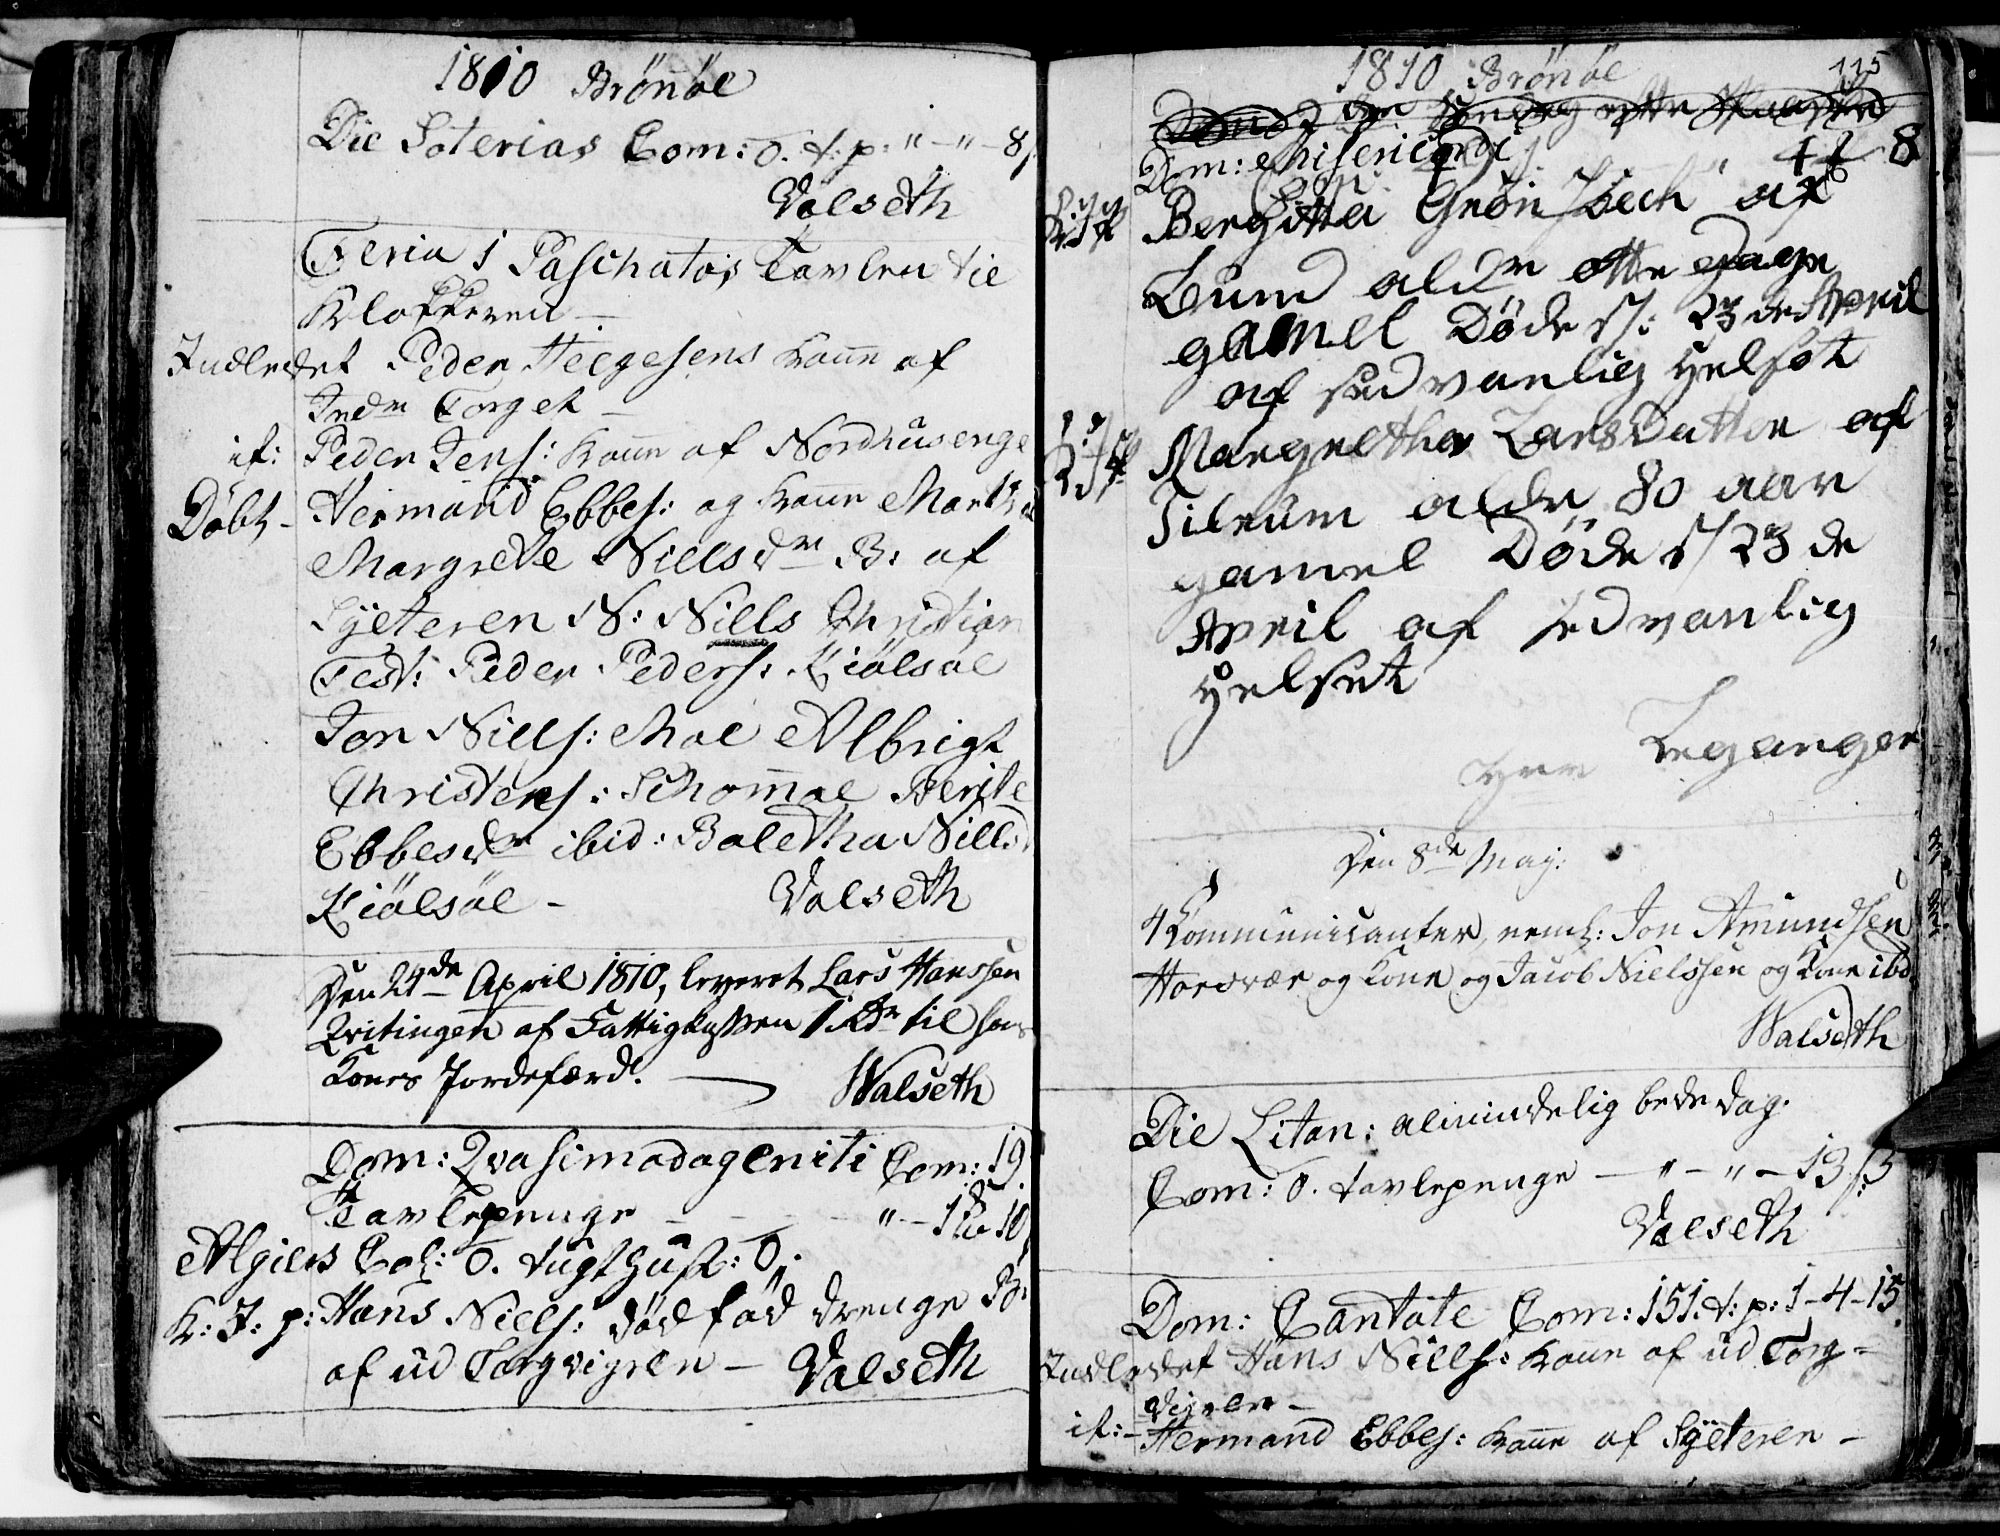 1810 Brönöe
Die Soterias Com: 0. t: p: " - " - 8 ß
Valseth
Feria 1 Paschatos Tavlen til
Klokkeren -
Indledet Peder Helgesens Kone af
Indr Torget -
it: Peder Jens: Kone af Nordhusenge
Döbt - Hermand Ebbes: og Kone
Margrete Nielsdr B: af
Syeteren N: Niells Christian
Test: Peder Peders: Kiölsöe
Jon Niells: Moe Albrigt
Christens: Schomoe Berite
Ebbesdr ibid: Baletha Niellsd
Kiölsöe - Valseth
Den 24de April 1810, leveret Lars Hanssen
Qvitingen af Fattigkassen 1 Rdr til hans
Kones Jordefærd. Walseth
Dom: Qvasimodogeniti Com: 19.
Tavlepenge - - - " - 1 - 10
Algiers Col: 0. tugthuset: 0.
K: J: p: Hans Niels: dödfød drenge B:
af ud Torgvigren - Valseth
1810 Brönöe
115
Dom: Misericordi
Bergitta Grön af
Lund alder otte dage
gamel Døde d: 23de April
af sedvanlig helsot
Margretha Larsdatter af
Tilrum alder 80 aar
gamel Døde d 23de
April af sedvanlig
helsot
Leganger
Den 8de Maj:
4 Kommunicanter, neml: Jon Amundsen
Horsvær og Kone og Jacob Nielssen og Kone ibd
Walseth
Die Litan: almindelig bededag.
Com: 0. tavlepenge - " - " - 13 ß
Valseth
Dom: Cantate Com: 151. t: p: 1 - 4 - 15.
Indledet Hans Niells: Kone af ud Torg-
vigren -
it: - Hermand Ebbes: Kone af Syeteren -